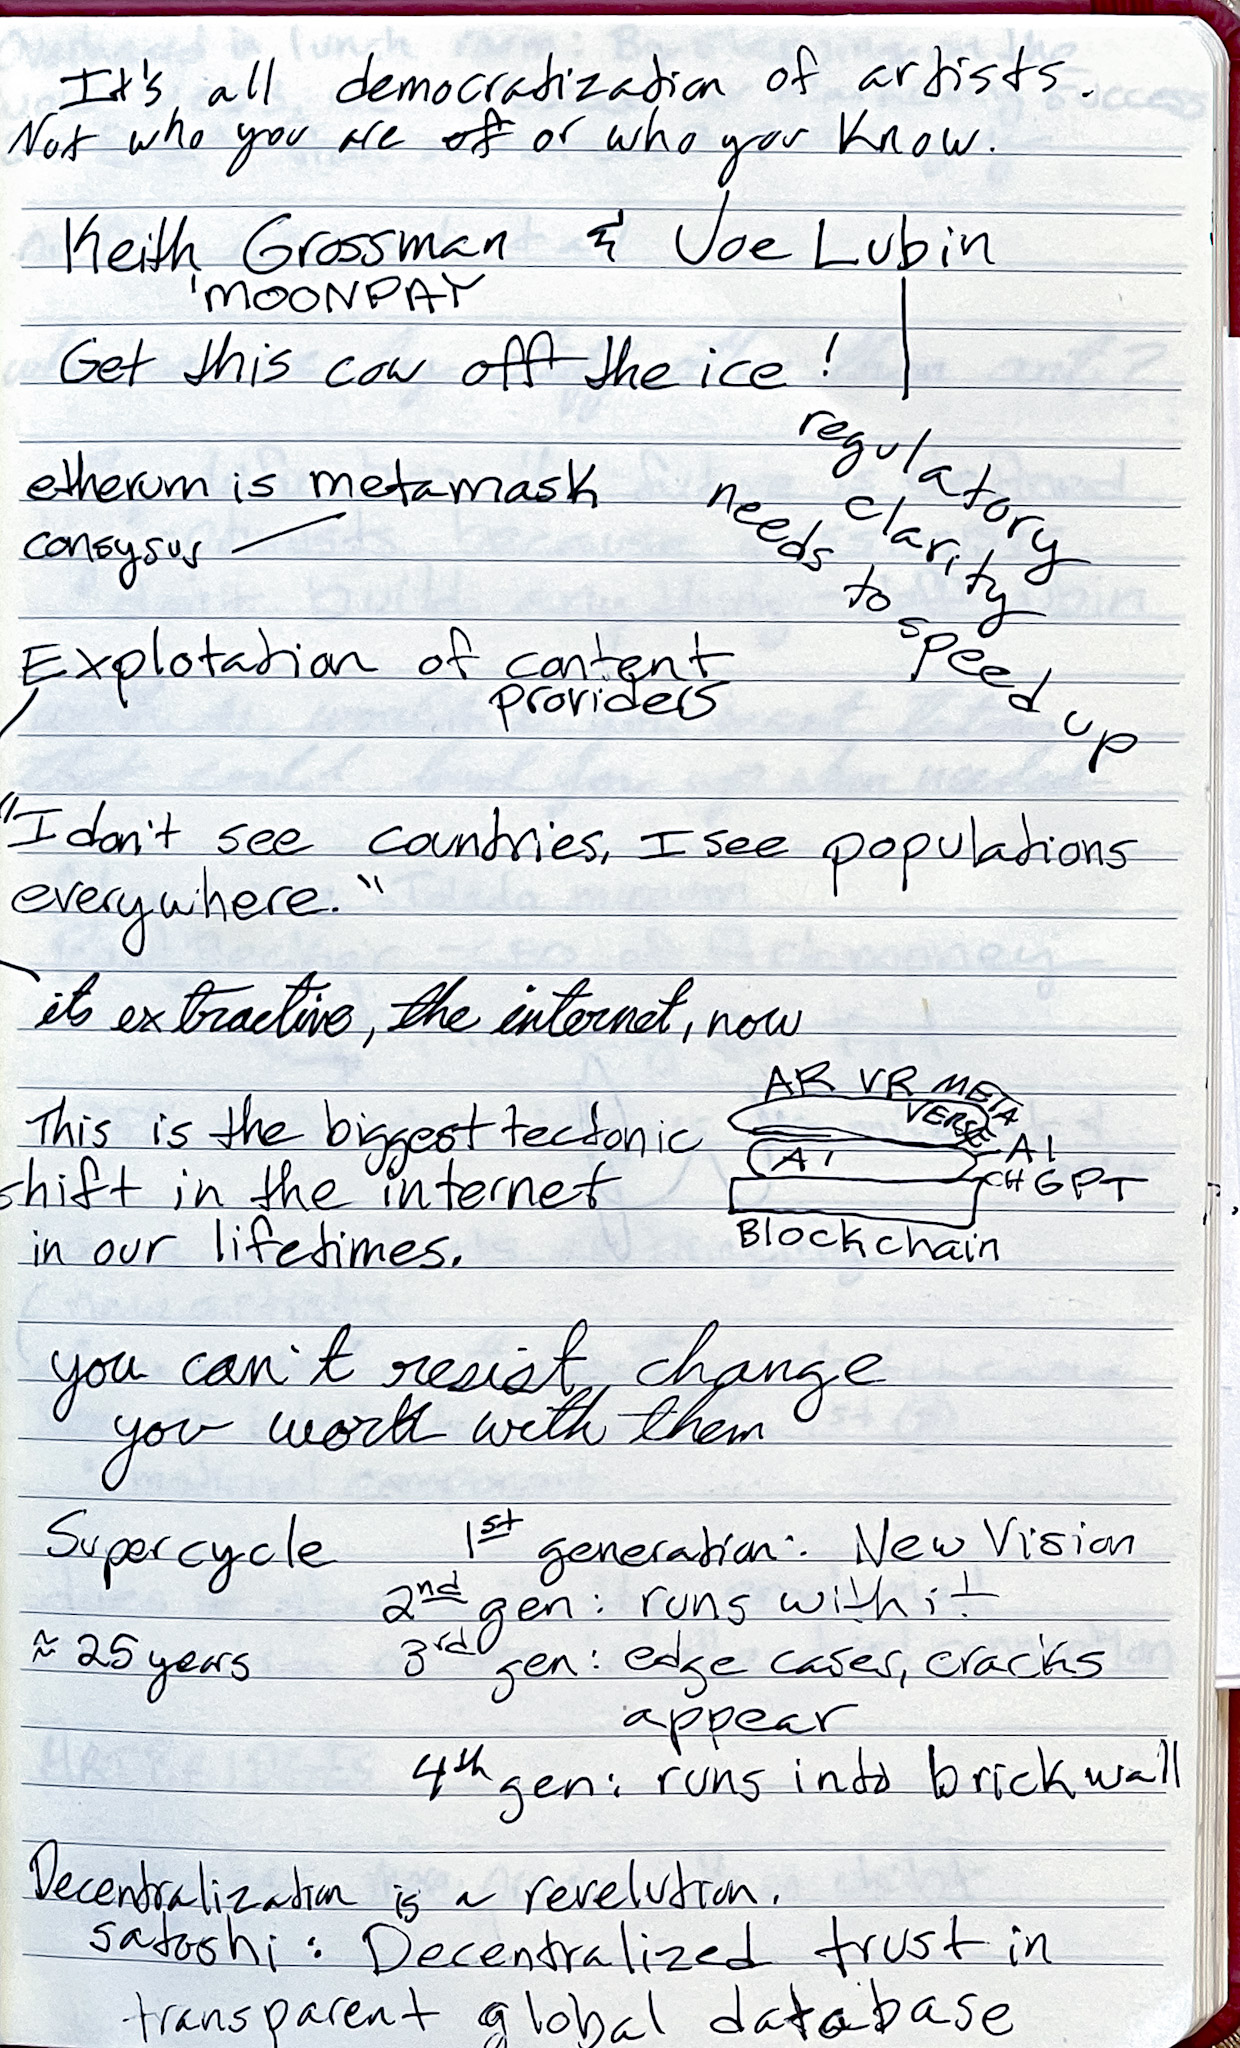 It's all democratization of artists.
Not who you are of or who you know.
Keith Grossman & Joe Lubin
MOONPAY
Get this cow off the ice!
regulatory
clarity
needs to speed up
etherum is metamask
consysus
Explotation of content
providers
"I don't see countries, I see populations
everywhere."
its extractive, the internet, now
AR VR META
VERSE
This is the biggest tectonic
shift in the internet
in our lifetimes.
AI
AI
CHGPT
Blockchain
you can't resist change
you work with them
Supercycle 1st generation: New Vision
2nd gen: runs with it
≈ 25 years 3rd gen: edge cases, cracks
appear
4th gen: runs into brick wall
Decentralization is a revelution.
satoshi: Decentralized trust in
transparent global database